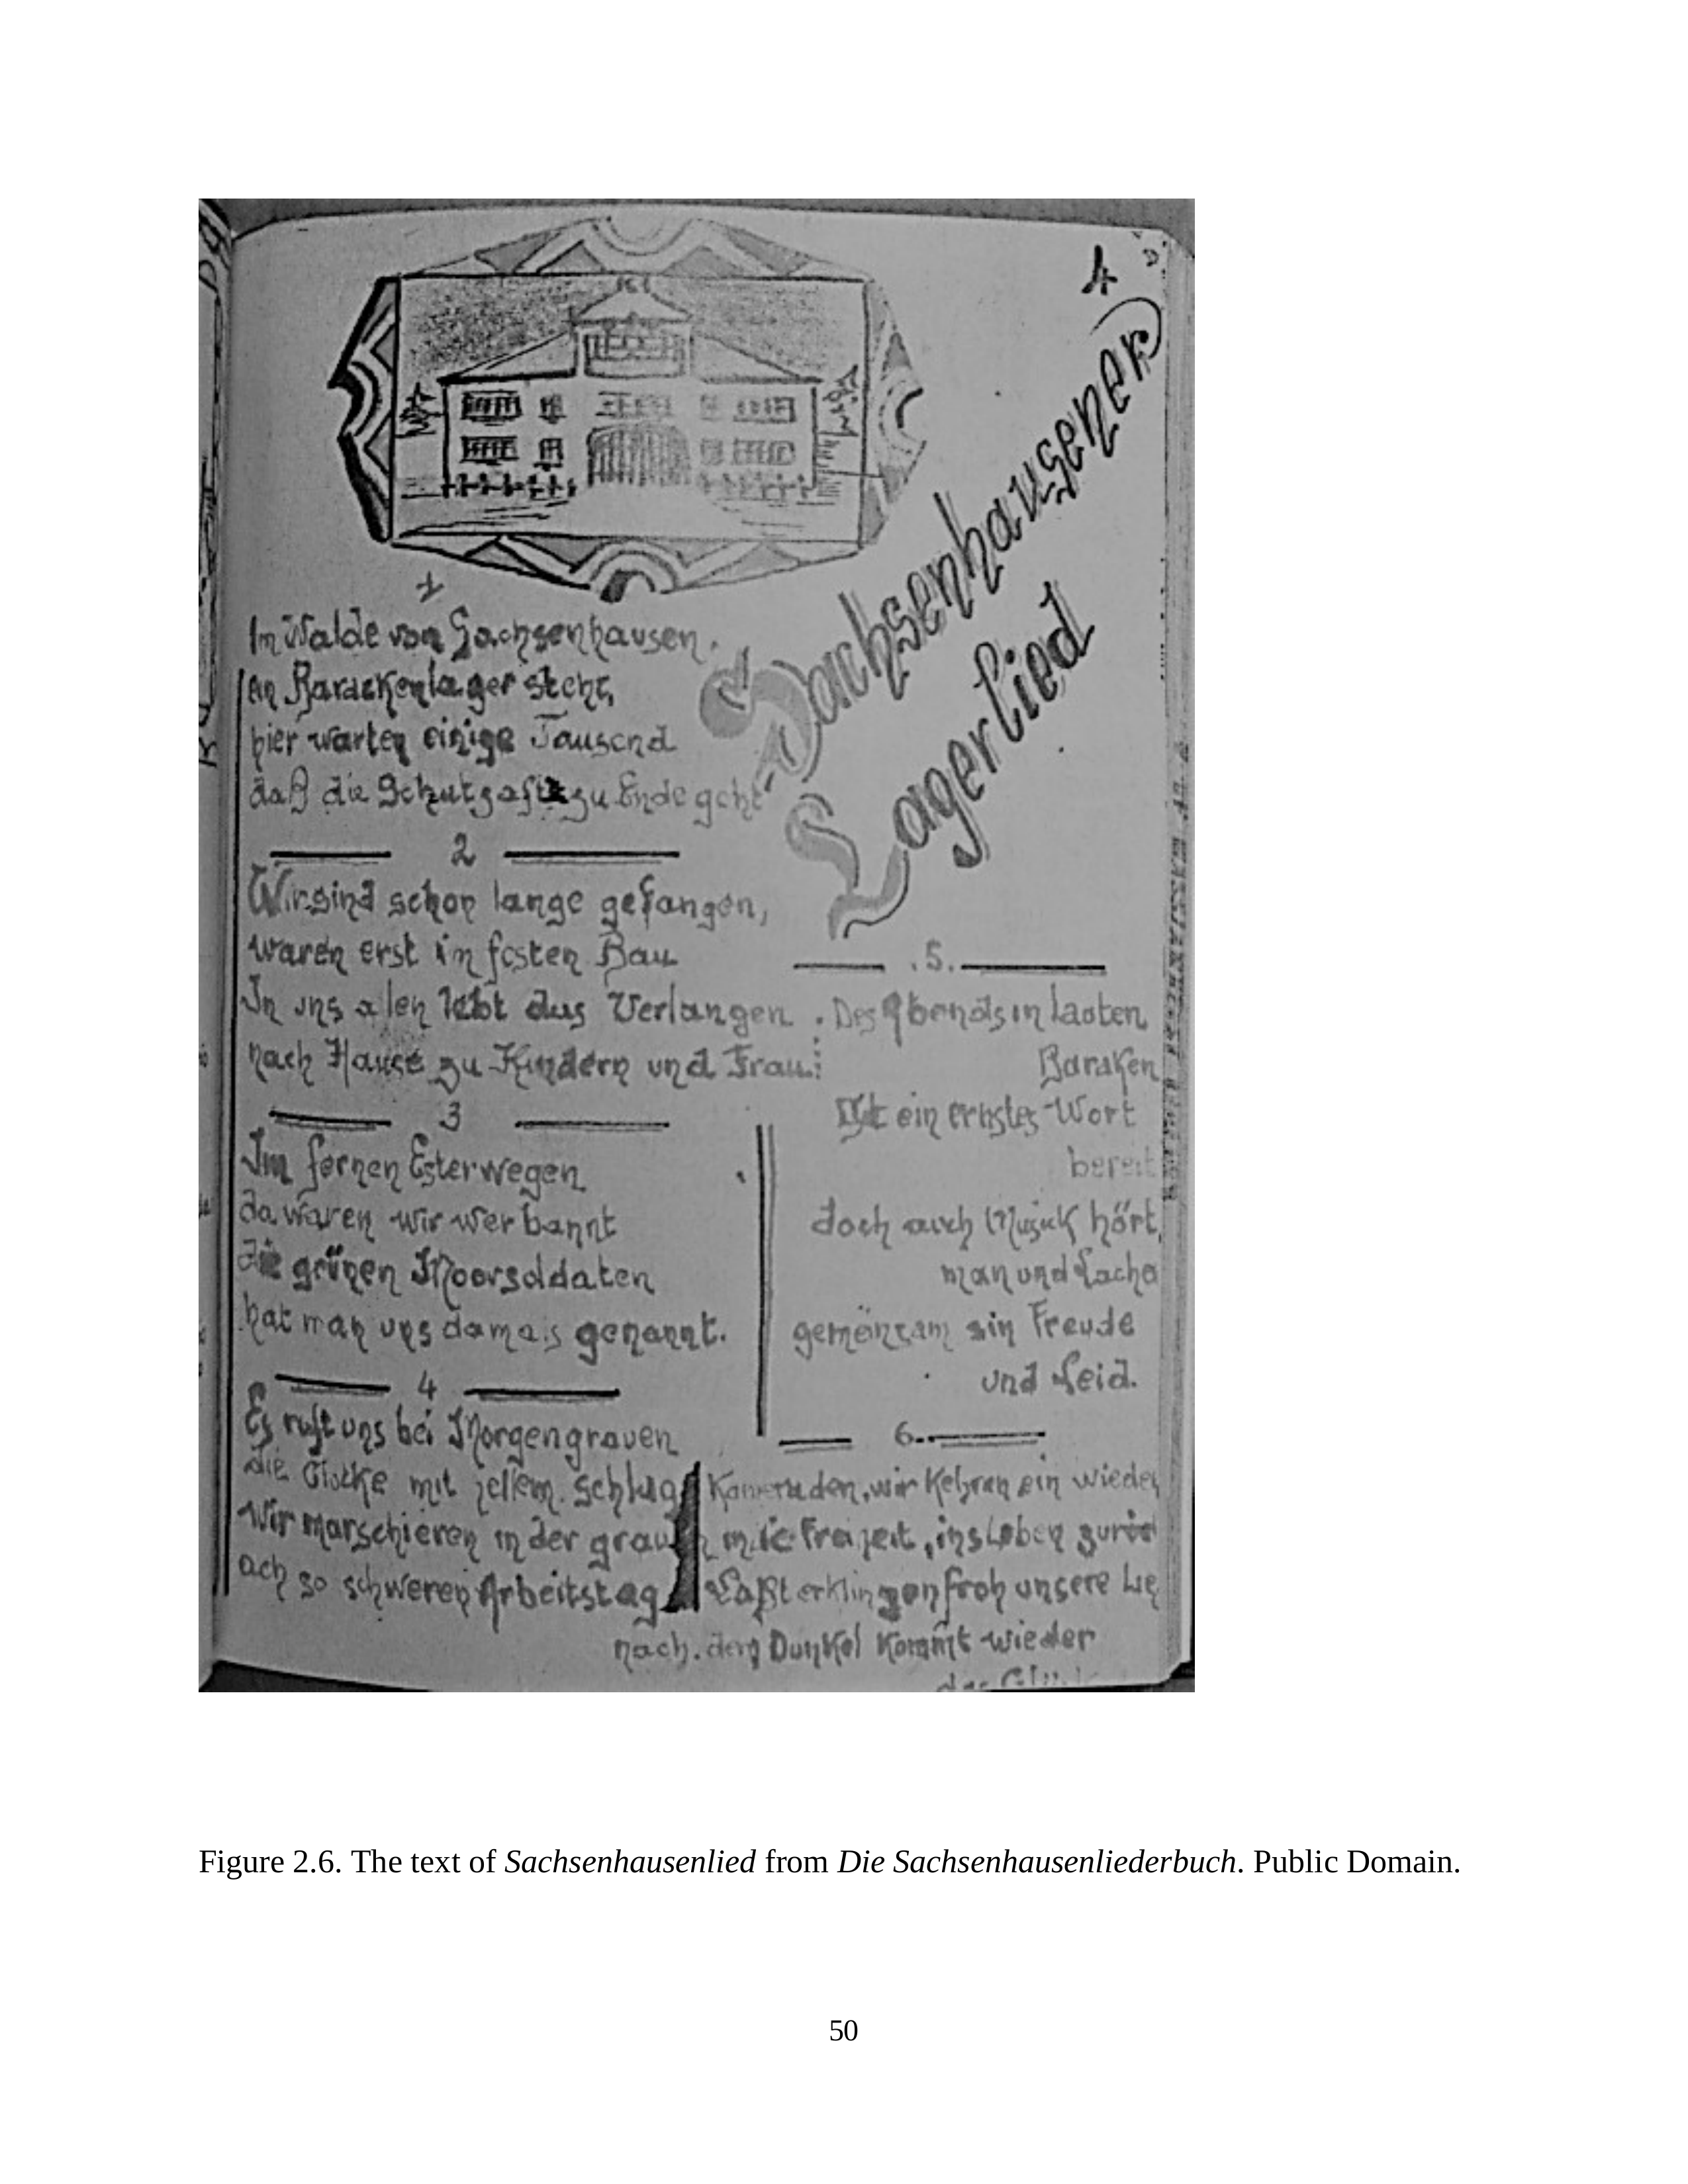 4
Sachsenhausener
Lagerlied
1
Im Walde von Sachsenhausen.
ein Barackenlager steht,
hier warten einige Tausend
daß die Schutzhaft zu Ende geht
2
Wir sind schon lange gefangen,
waren erst in festen Bau
In uns allen lebt das Verlangen
nach Hause zu Kindern und Frau.
3
Im fernen Esterwegen
da waren wir verbannt
die grünen Moorsoldaten
hat man uns damals genannt.
4
Es ruft uns bei Morgengrauen
die Glocke mit jellem schlag
Wir marschieren in der grauen
ach so schweren Arbeitstag
.5.
Des Abends in Lauten
Baraken
Ist ein ernstes Wort
bereit
doch auch Musick hört
man und Lache
gemeinsam sin Freude
und Leid.
6.
Kameraden, wir Kehren ein wieder
in die Freiheit, ins Leben zurück
Laßt erklingen froh unsere Lie
nach dem Dunkel Kommt wieder
das Glück
Figure 2.6. The text of Sachsenhausenlied from Die Sachsenhausenliederbuch. Public Domain.
50